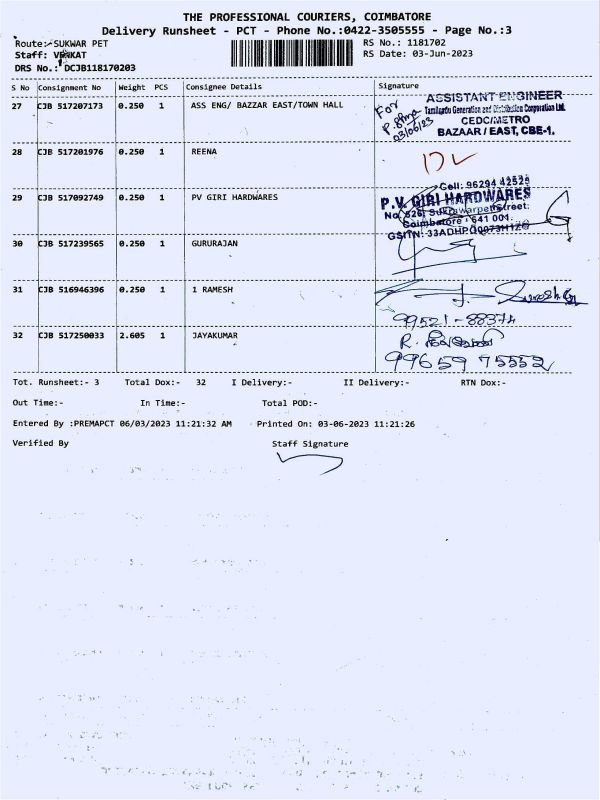 THE PROFESSIONAL COURIERS, COIMBATORE
Delivery Runsheet - PCT - Phone No.:0422-3505555 - Page No.:3
Route:-SUKWAR PET
RS No.: 1181702
Staff: VENKAT
RS Date: 03-Jun-2023
DRS No.: DCJB118170203
S No Consignment No Weight PCS Consignee Details Signature
27 CJB 517207173 0.250 1 ASS ENG/ BAZZAR EAST/TOWN HALL
For
03/06/23
ASSISTANT ENGINEER
Tamilnadu Generation and Distribution Corporation Ltd.
CEDC/METRO
BAZAAR / EAST, CBE-1.
28 CJB 517201976 0.250 1 REENA
29 CJB 517092749 0.250 1 PV GIRI HARDWARES
Cell: 96294 42529
P.V. GIRI HARDWARES
No. 526, Sukrawarpet Street,
Coimbatore - 641 001.
30 CJB 517239565 0.250 1 GURURAJAN
31 CJB 516946396 0.250 1 1 RAMESH
99521-88374
32 CJB 517250033 2.605 1 JAYAKUMAR
99659 75552
Tot. Runsheet:- 3 Total Dox:- 32 I Delivery:- II Delivery:- RTN Dox:-
Out Time:- In Time:- Total POD:-
Entered By :PREMAPCT 06/03/2023 11:21:32 AM Printed On: 03-06-2023 11:21:26
Verified By Staff Signature